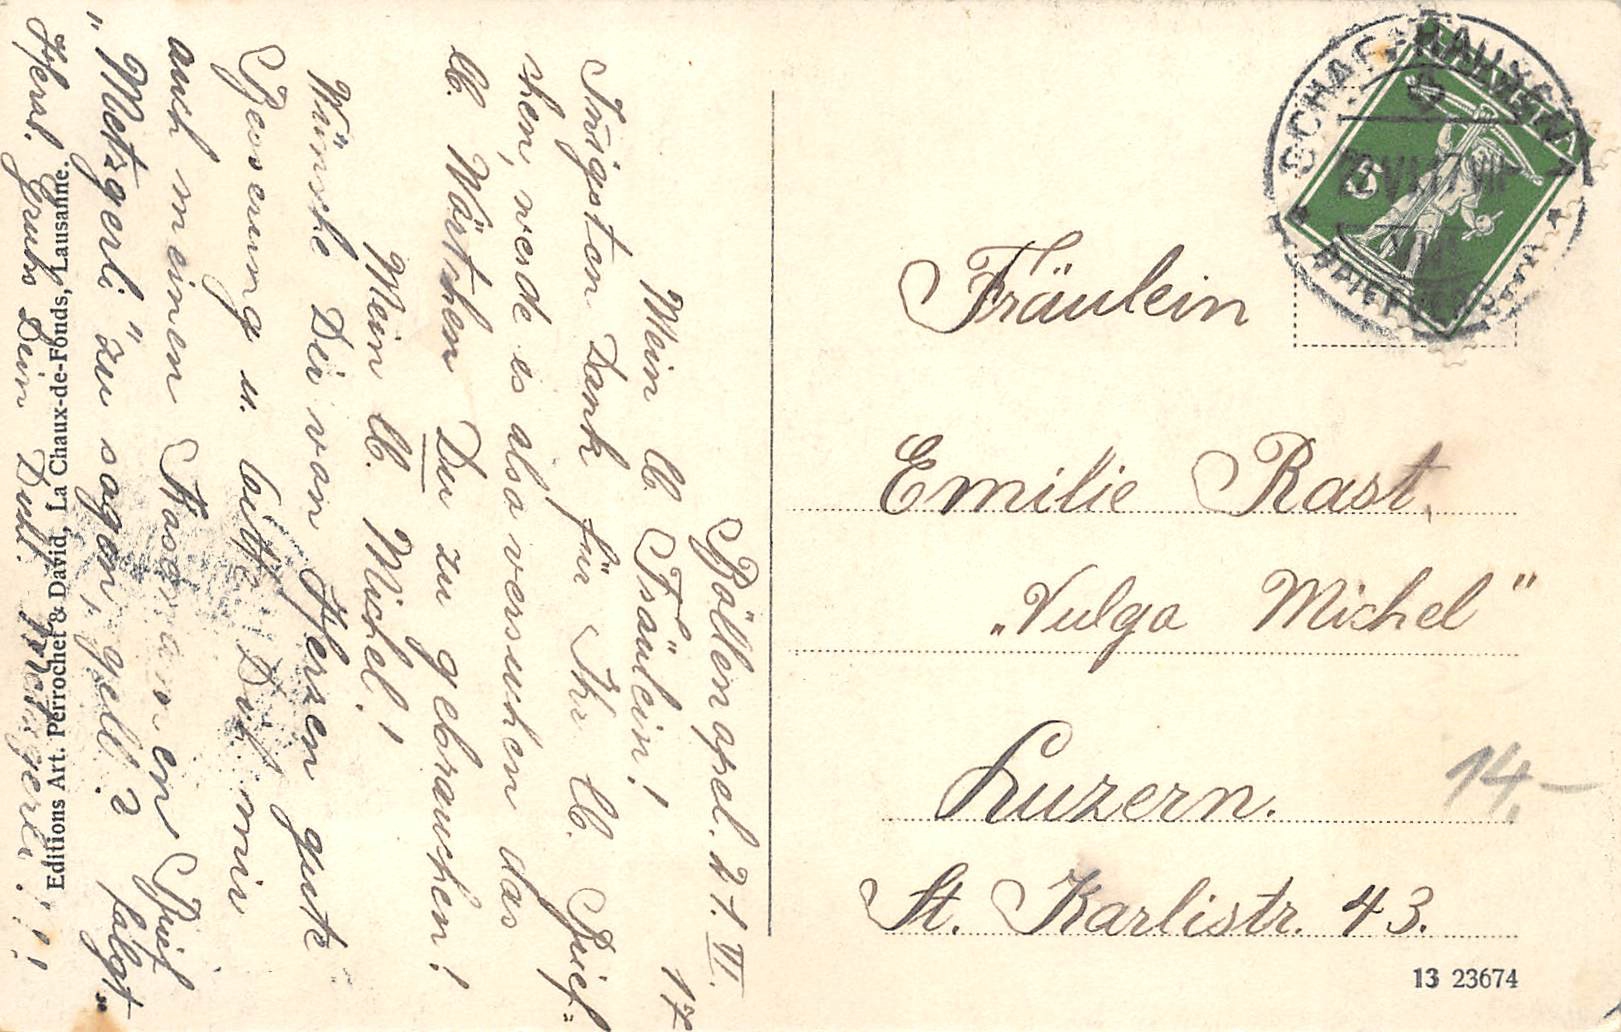 Böllenapel. 21. VI. 17
Mein lb Fräulein!
Innigsten Dank für Ihr lb. Brief-
chen, werde es also versuchen das
lb. Wörtchen Du zu gebrauchen!
Mein lb. Michel!
Wünsche Dir von Herzen gute
Besserung u. bitte Dich mir
auch meinen Kosenamen
"Metzgerli" zu sagen, gell? Brief folgt
Herzl. Gruss Dein Dich. Metzgerli!!!
Editions Art. Perrochet & David, La Chaux-de-Fonds, Lausanne.
SCHAFFHAUSEN 1
22. VI. 17. VII
BRIEFVERSAND
5
Fräulein
Emilie Rast,
"Vulgo Michel"
Luzern.
St. Karlistr. 43.
14.-
13 23674